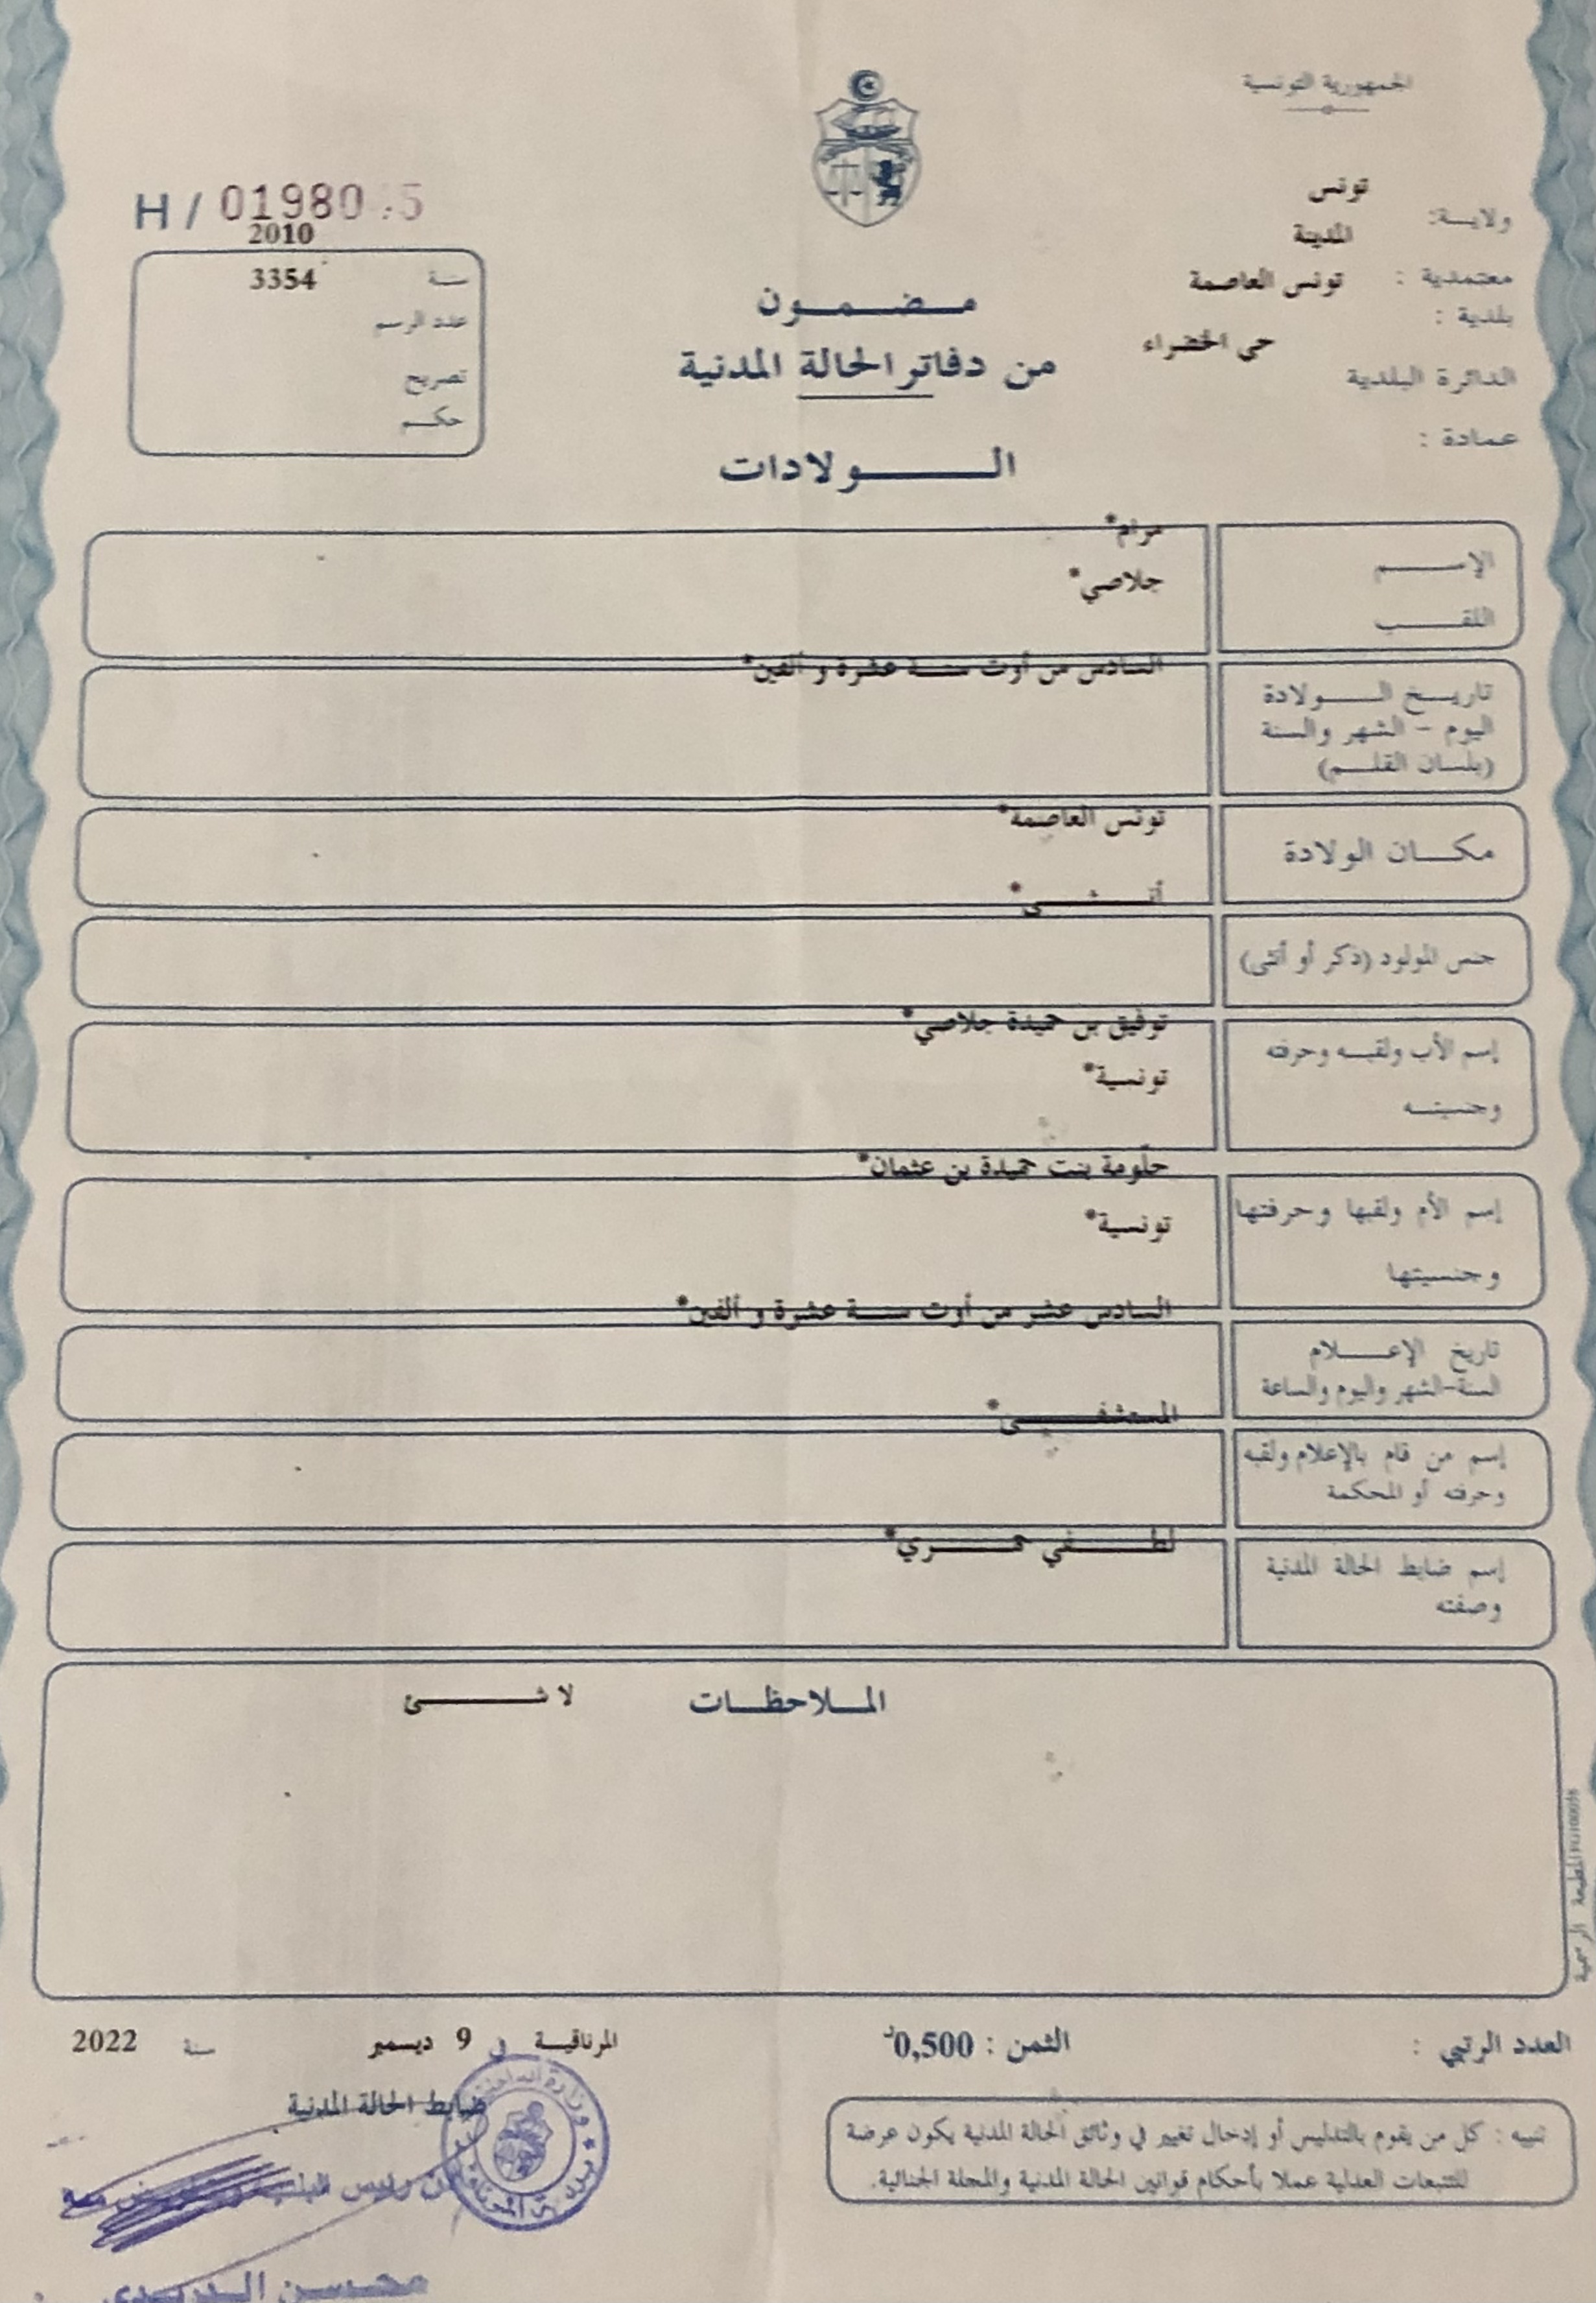 الجمهورية التونسية
ولايـــة: تونس
المدينة
معتمدية : تونس العاصمة
بلدية :
حي الخضراء
الدائرة البلدية
عمادة :
H / 01980
2010
سنة 3354
عدد الرسم
تصريح
حكم
مضمون
من دفاتر الحالة المدنية
الولادات
مرام*
الإسم
جلاصي*
اللقب
السادس من أوت سنة عشرة و ألفين*
تاريخ الولادة
اليوم - الشهر والسنة
(بلسان القلم)
تونس العاصمة*
مكان الولادة
أنثى*
جنس المولود (ذكر أو أنثى)
توفيق بن حميدة جلاصي*
إسم الأب ولقبه وحرفته
تونسية*
وجنسيته
حلومة بنت حميدة بن عثمان*
إسم الأم ولقبها وحرفتها
تونسية*
وجنسيتها
السادس عشر من أوت سنة عشرة و ألفين*
تاريخ الإعلام
السنة-الشهر واليوم والساعة
المستشفى*
إسم من قام بالإعلام ولقبه
وحرفته أو المحكمة
لطفي حمري*
إسم ضابط الحالة المدنية
وصفته
الملاحظات لا شئ
المطبعة الرسمية
العدد الرتبي :
الثمن : 0,500د
المرناقية في 9 ديسمبر سنة 2022
ضابط الحالة المدنية
تنبيه : كل من يقوم بالتدليس أو إدخال تغيير في وثائق الحالة المدنية يكون عرضة
للتتبعات العدلية عملا بأحكام قوانين الحالة المدنية والمجلة الجنائية.
وزارة الداخلية
عن رئيس البلدية
محسن الدريدي